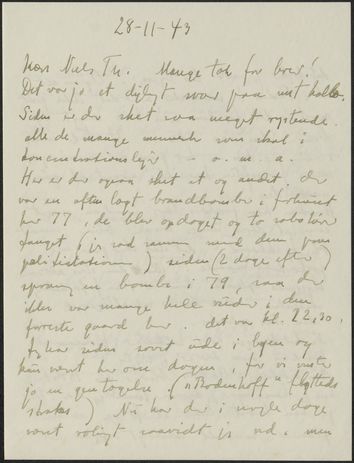 28-11-43
Kære Niels Th. Mange tak for brev!
Det var jo et dejligt svar paa mit
Siden er der sket saa meget rystende.
alle de mange mennesk som skal i
koncentrationslejr - o. m. a.
Her er der ogsaa sket et og andet, der
var en aften lagt brandbomber i forhuset
her 77, de blev opdaget og to sabotører
fanget (jeg sad sammen med dem paa
politistationen) siden (2 dage efter)
sprang en bombe i 79, saa der
ikke var mange hele ruder i den
forreste gaard her. det var kl. 22,30.
Jeg har siden sovet ude i byen og
kun været her om dagen, for vi vente
jo en gentagelse ("Bodenhoff" flyttede
straks) Nu har der i nogle dage
været roligt saavidt jeg ved. men